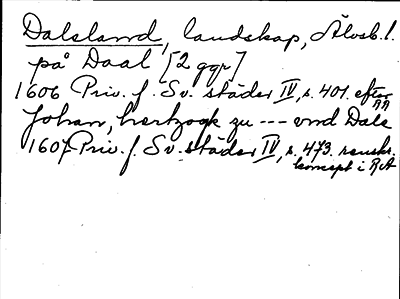 Dalsland, landskap, Älvsb. l.
på Daal [2 ggr]
1606 Priv. f. Sv. städer IV, s. 401. efter RR
Johan, hertzogk zu --- vnd Dals
1607 Priv. f. Sv. städer IV, s. 473. renskr.
koncept i RA